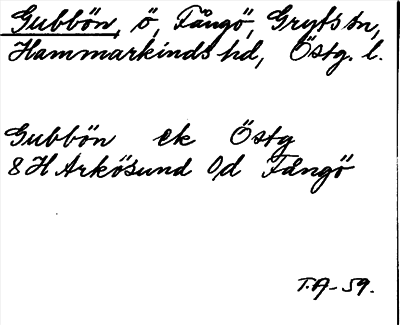 Gubbön, ö, Fångö, Gryts sn,
Hammarkinds hd, Östg. l.
Gubbön ek Östg
8H Arkösund 0d Fångö
T.A-59.